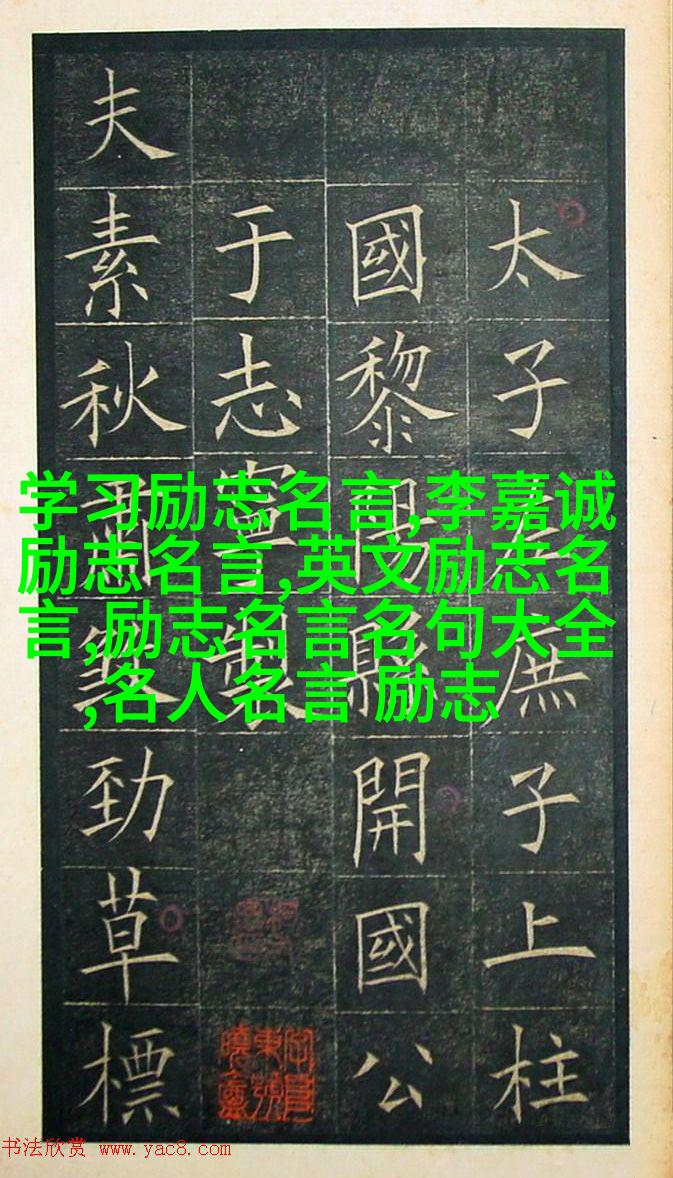 太子左庶子上柱
國黎陽縣開國公
于志寧製
夫素秋肅煞勁草標
学习励志名言,李嘉诚
励志名言,英文励志名
言,励志名言名句大全
,名人名言 励志
书法欣赏 www.yac8.com